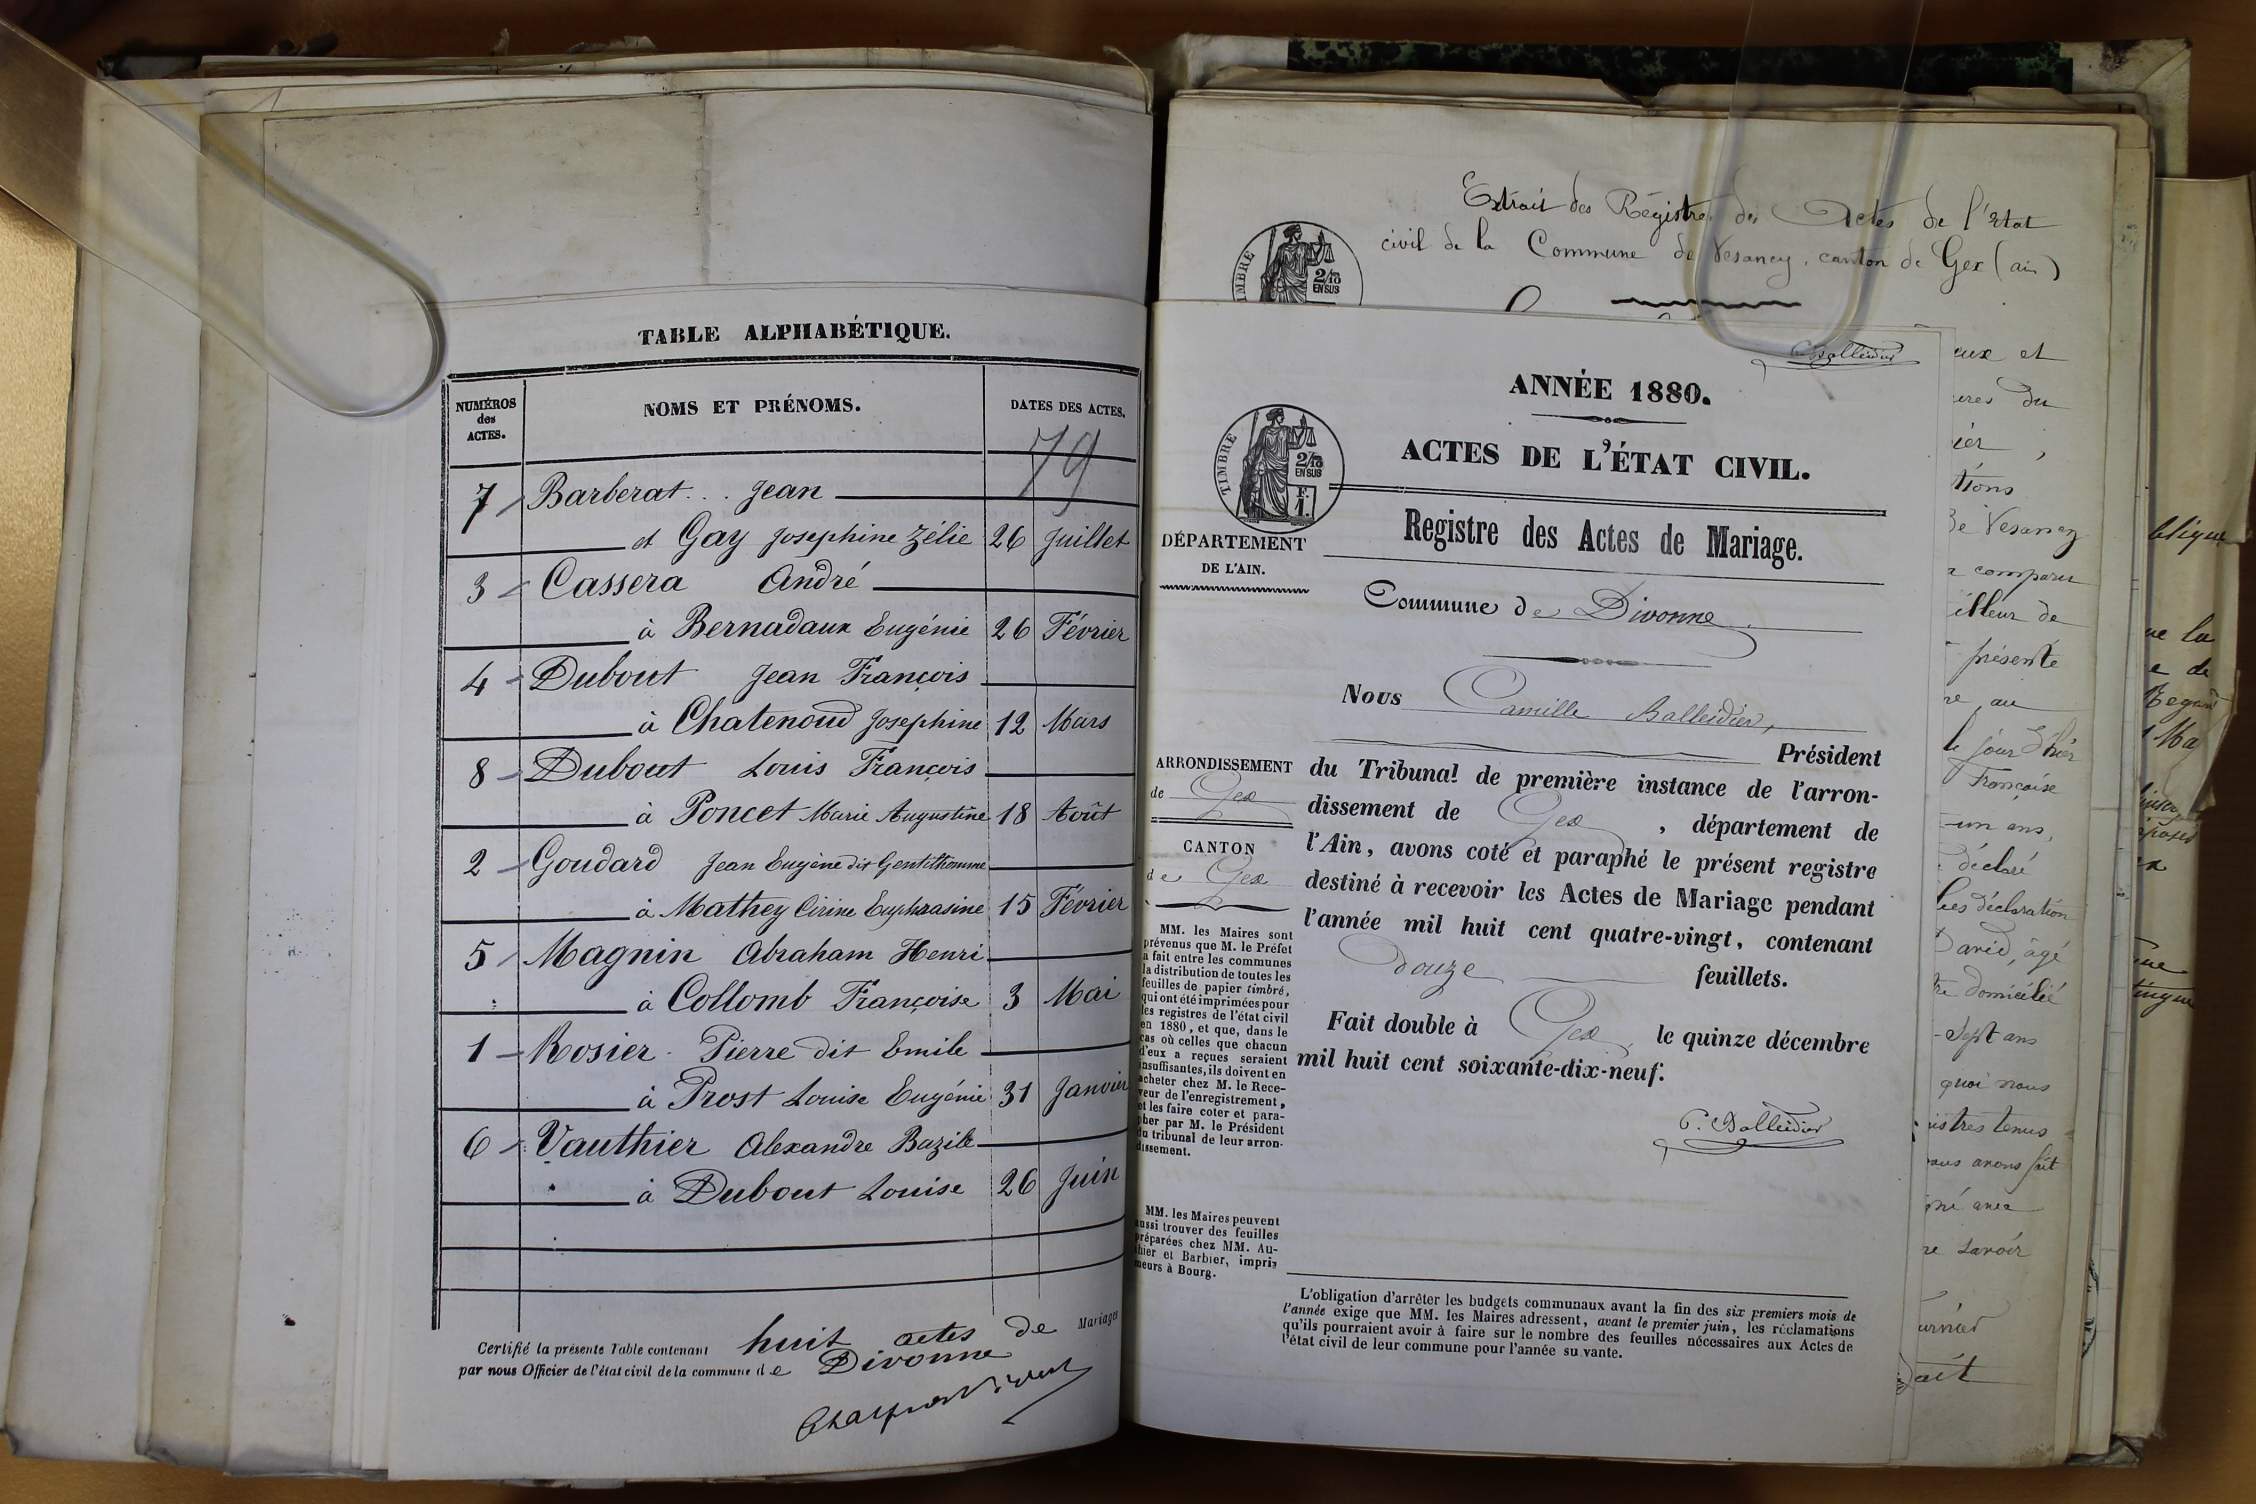 TABLE ALPHABÉTIQUE.
NUMÉROS des ACTES.
NOMS ET PRÉNOMS.
DATES DES ACTES.
79
7 Barberat Jean
et Gay Josephine Zélie 26 Juillet
3 Cassera André
à Bernadaux Eugénie 26 Février
4 Dubout Jean François
à Chatenoud Josephine 12 Mars
8 Dubout Louis François
à Poncet Marie Augustine 18 Août
2 Goudard Jean Eugène dit Gentilhomme
à Mathey Cirine Euphrasine 15 Février
5 Magnin Abraham Henri
à Collomb Françoise 3 Mai
1 Rosier Pierre dit Emile
à Prost Louise Eugénie 31 Janvier
6 Vauthier Alexandre Bazile
à Dubout Louise 26 Juin
Certifié la présente Table contenant huit actes de Mariages
par nous Officier de l'état civil de la commune de Divonne
Extrait des Régistres des Actes de l'Etat
civil de la Commune de Vesancy, canton de Gex (ain)
TIMBRE
2/10
EN SUS
C. Balleidier
ANNÉE 1880.
ACTES DE L'ÉTAT CIVIL.
TIMBRE
2/10
EN SUS
F.
1.
Registre des Actes de Mariage.
DÉPARTEMENT
DE L'AIN.
Commune de Divonne.
Nous Camille Balleidier,
Président
ARRONDISSEMENT
de Gex
CANTON
de Gex
du Tribunal de première instance de l'arron-
dissement de Gex , département de
l'Ain, avons coté et paraphé le présent registre
destiné à recevoir les Actes de Mariage pendant
l'année mil huit cent quatre-vingt, contenant
douze feuillets.
Fait double à Gex, le quinze décembre
mil huit cent soixante-dix-neuf.
C. Balleidier
MM. les Maires sont
prévenus que M. le Préfet
a fait entre les communes
la distribution de toutes les
feuilles de papier timbré,
qui ont été imprimées pour
les registres de l'état civil
en 1880, et que, dans le
cas où celles que chacun
d'eux a reçues seraient
insuffisantes, ils doivent en
acheter chez M. le Rece-
veur de l'enregistrement,
et les faire coter et para-
pher par M. le Président
du tribunal de leur arron-
dissement.
MM. les Maires peuvent
aussi trouver des feuilles
préparées chez MM. Au-
thier et Barbier, impri-
meurs à Bourg.
L'obligation d'arrêter les budgets communaux avant la fin des six premiers mois de
l'année exige que MM. les Maires adressent, avant le premier juin, les réclamations
qu'ils pourraient avoir à faire sur le nombre des feuilles nécessaires aux Actes de
l'état civil de leur commune pour l'année suvante.
eux et
du
tions
de Vesancy
comparu
de
présente
au
le jour d'hier
Française
un ans,
déclaré
déclaration
David, âgé
domicilié
sept ans
quoi nous
tenus
avons fait
avec
savoir